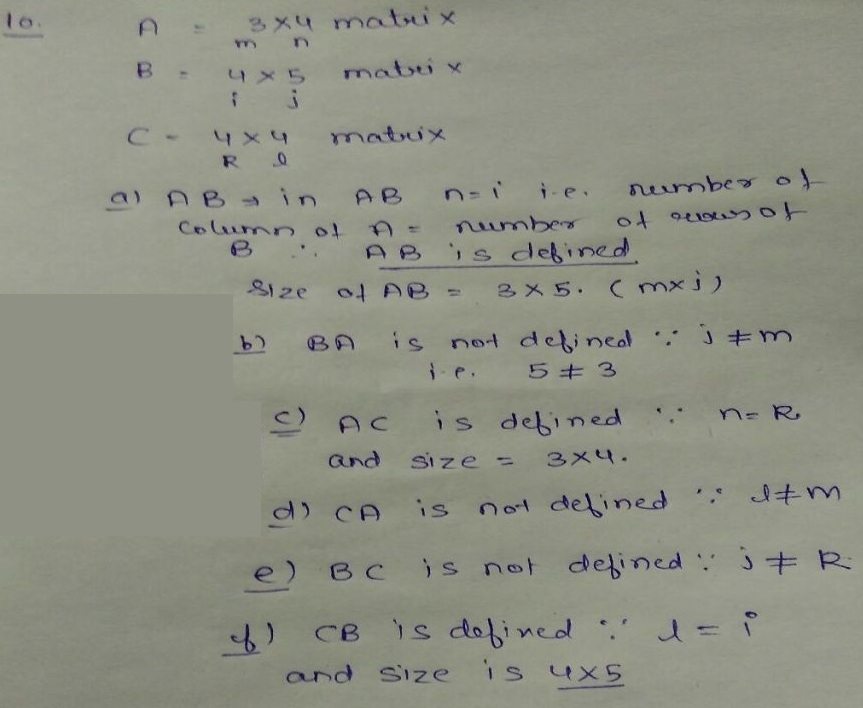 10. A = 3×4 matrix
m n
B = 4×5 matrix
i j
C - 4×4 matrix
R l
a) AB → in AB n=i i.e. number of
column of A = number of rows of
B ∴ AB is defined.
Size of AB = 3×5. (m×j)
b) BA is not defined ∵ j≠m
i.e. 5≠3
c) AC is defined ∵ n=R
and size = 3×4.
d) CA is not defined ∵ l≠m
e) BC is not defined ∵ j≠R
f) CB is defined ∵ l=i
and size is 4×5